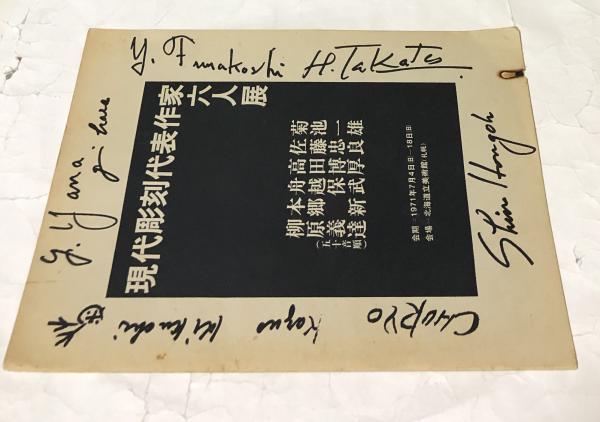 Y. Funakoshi
H. Takata.
現代彫刻代表作家
六人展
菊池一雄
佐藤忠良
高田博厚
舟越保武
本郷新
柳原義達
(五十音順)
会期=1971年7月4日(日)—18日(日)
会場=北海道立美術館(札幌)
Y. Yanagihara
Shin Hongoh
Kazuo Kikuchi
CHURYO